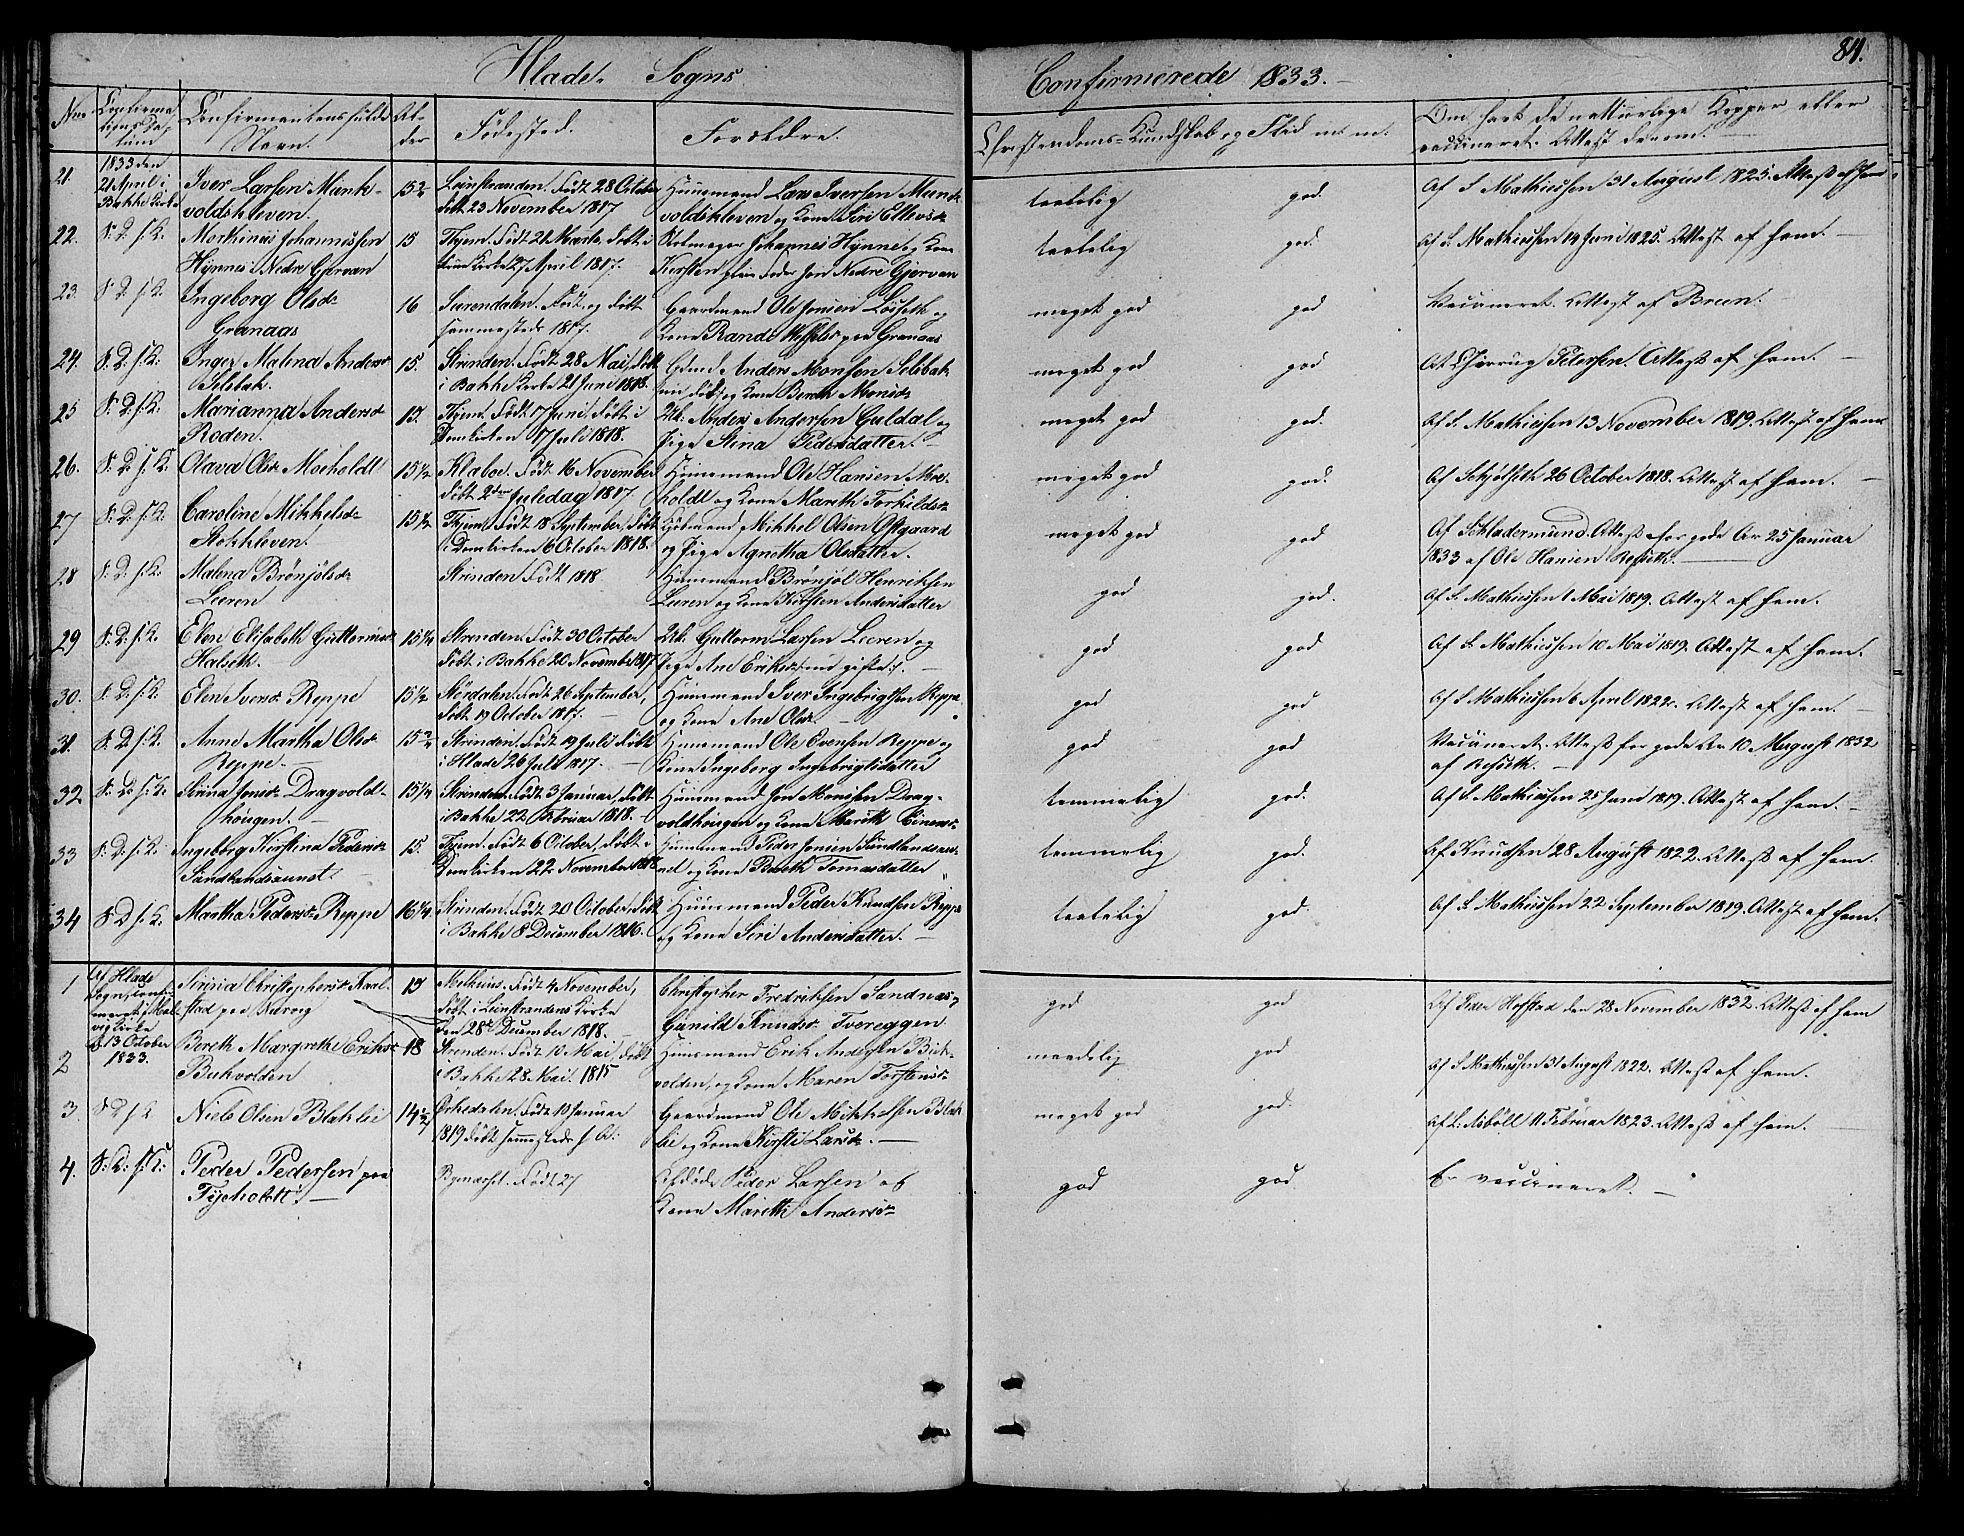 Hlade Sogns Confirmerede 1833.
84.
Nro Confirmations Datum Confirmantens fulde Navn. Alder Fødested. Forældre. Christendoms-Kundskab og Flid m. m. Om havt de naturlige Kopper eller vaccineret. Attest derom.
21. 1833 den 21 April i Bakke Kirke Iver Larsen Munkvoldskleven. 15 1/2 Leinstranden. Født 28 October Døbt 23 November 1817 Huusmand Lars Iversen Munkvoldskleven og Kone Siri Ellevsdr taalelig god. Af S. Mathiessen 31 August 1825. Attest af ham
22. S. D. s. K. Morthinus Johannessen Hynnes Nedre Gjervan 15 Thjem. Født 21 Marts, Døbt i Kirke 27 April 1817. Johannes Hynne og Kone Kirsten Foder Jon Nedre Gjervan taalelig god. Af S. Mathiessen 14 Juni 1825. Attest af ham.
23. S. D. s. K. Ingeborg Olsdr Granaas 16 Surendalen. Født og Døbt sammesteds 1817. Gaardmand Ole Jonsen Løsseth og Kone Rande paa Granaas meget god god Vaccineret. Attest af Brun.
24. S. D. s. K. Inger Malena Andersdr Selsbak. 15. Strinden. Født 28 Mai, Døbt i Bakke Kirke 21 Juni 1818. Gdmd Anders Monsen Selsbak og Kone Bereth Monsdr meget god god Af Chirurg Petersen. Attest af ham.
25 S. D. s. K. Marianna Andersdr Roden. 15. Thjem. Født 17 Juni, Døbt i Domkirken 17 Juli 1818. Uk. Anders Andersen Guldal og Pige Stina Pedersdatter. meget god god. Af S. Mathiessen 13 November 1819. Attest af ham
26. S. D. s. K. Olava Olsdr Moeholdt 15 1/2 Klæboe. Født 16 November Døbt 2den Juledag 1817. Huusmand Ole Hansen Moeholdt og Kone Mareth Torkildsdr meget god god. Af Schjølseth 26 October 1818. Attest af ham.
27 S. D. s. K. Caroline Mikkelsdr Stokkleven. 15 1/2 Thjem. Født 18 September, Døbt i Domkirken 6 October 1818. Mikkel Olsen Ostgaard og Pige Agnetha Olsdatter. meget god god Af Schladermund. Attest for gode Ar 25 Januar 1833 af Ole Hansen Refseth.
28 S. D. s. K. Malena Brønjølsdr Leeren Strinden Født 1818. Huusmand Brønjøl Henriksen Leeren og Kone Kirsten Andersdatter god god. Af S. Mathiessen 1 Mai 1819. Attest af ham.
29 S. D. s. K. Elen Elisabeth Guttormsdr Halseth. 15 1/4 Strinden. Født 30 October Døbt i Bakke 20 November 1817 Uk. Guttorm Larsen Leeren og Pige Ane Eriksdr god god Af S. Mathiessen 10 Mai 1819. Attest af ham.
30. S. D. s. K. Elen Iversdr Reppe 15 1/2 Størdalen. Født 26 September, Døbt 19 October 1817. Huusmand Iver Ingebrigtsen Reppe og Kone Ane Olsdr god god Af S. Mathiessen 6 April 1822. Attest af ham.
31. S. D. s. K. Anne Martha Olsdr Reppe. 15 3/4 Strinden. Født 19 Juli Døbt i Hlade 26 Juli 1817. Huusmand Ole Evensen Reppe og Kone Ingeborg Ingebrigtsdatter god god Vaccineret. Attest for gode Ar 10 August 1832 af Refseth.
32 S. D. s. K. Sirina Jonsdr Dragvoldhougen. 15 1/4 Strinden. Født 3 Januar, Døbt i Bakke 22 Februar 1818. Huusmand Jon Monssen Dragvoldhougen og Kone Marith Einersdr temmelig god. Af S. Mathiessen 25 Juni 1819. Attest af ham.
33 S. D. s. K. Ingeborg Kirstina Pedersdr Sandlandsaunet 15. Thjem. Født 6 October, Døbt i Domkirken 22 November 1818 Huusmand Peder Jonsen Sandlandsaunet og Kone Bereth Tomasdatter temmelig god. Af Knudsen 28 August 1822. Attest af ham.
34 S D s. K. Martha Pedersdr Reppe 16 1/4 Strinden. Født 20 October, Døbt i Bakke 8 December 1816. Huusmand Peder Knudsen Reppe og Kone Siri Andersdatter. taalelig god. Af S. Mathiessen 22 September 1819. Attest af ham.
1 Af Hlade Sogn, confirmeret i Malvig Kirke d. 13 October 1833. Sirina Christophersdr Karlstad paa Ranvig 15 Melhuus. Født 4 November, Døbt i Leinstrandens Kirke den 28de December 1818. Christopher Fredriksen Sandnas og Gunild Knudsdr Tvereggen god god Af Peder Hofstad den 28 November 1832. Attest af ham
2 Bereth Margrethe Eriksdr Bukvolden 18 Strinden. Født 10 Mai, Døbt i Bakke 28 Mai. 1815 Huusmand Erik Andersen Bukvolden, og Kone Maren Torstensdr maadelig god Af S. Mathiessen 31 August 1822. Attest af ham.
3. S D s. K Niels Olsen Blaklie 14 3/4 Orkedalen. Født 10 Januar 1819 Døbt sammesteds s. A. Gaardmand Ole Mikkelsen Blaklie og Kone Kirsti Larsdr. meget god god. Af L. Aibøll 11 Februar 1823. Attest af ham.
4. S. D. s. K. Peder Pedersen paa Tycholdt. Bynæsset. Født 27 Afdøde Peder Larsen og Kone Marethe Andersdr god god. Er vaccineret.